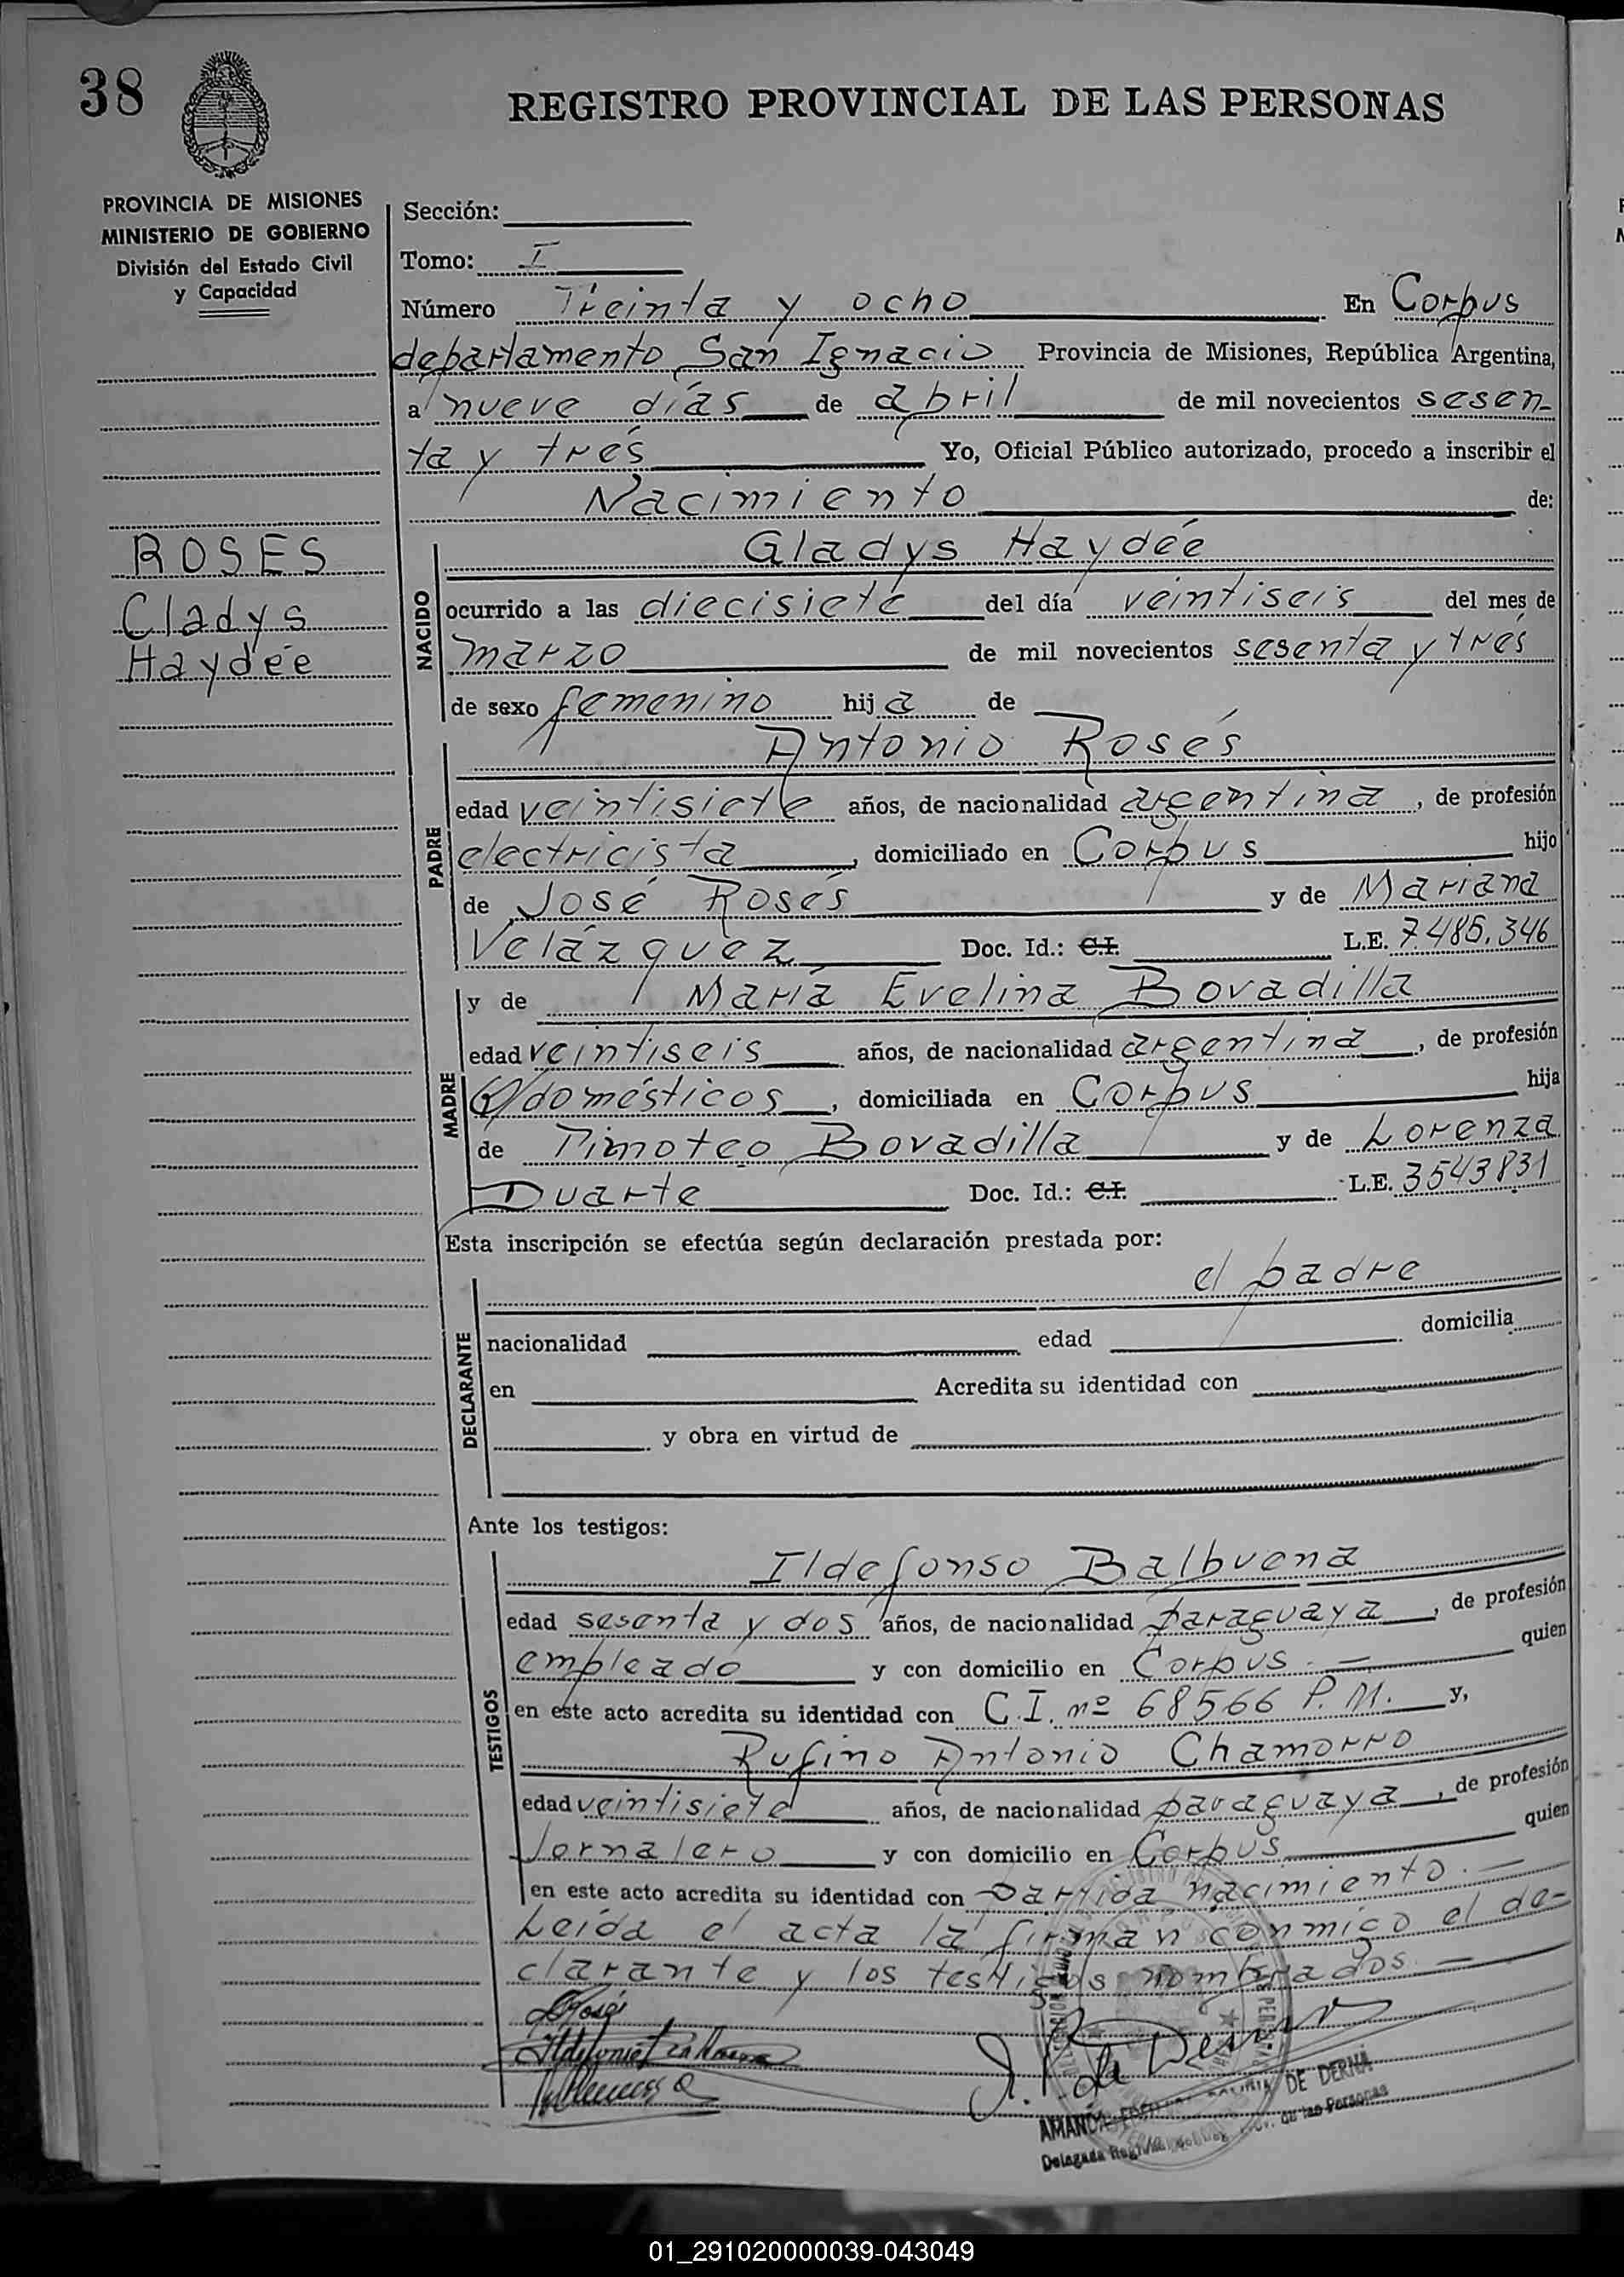 38
REGISTRO PROVINCIAL DE LAS PERSONAS
PROVINCIA DE MISIONES
MINISTERIO DE GOBIERNO
División del Estado Civil
y Capacidad
ROSES
Cladys
Haydée
Sección:
Tomo: I
Número Treinta y ocho En Corpus
departamento San Ignacio Provincia de Misiones, República Argentina,
a nueve días de abril de mil novecientos sesen-
ta y tres Yo, Oficial Público autorizado, procedo a inscribir el
Nacimiento de:
NACIDO
Gladys Haydée
ocurrido a las diecisiete del día veintiseis del mes de
marzo de mil novecientos sesenta y tres
de sexo femenino hija de
PADRE
Antonio Rosés
edad veintisiete años, de nacionalidad argentina, de profesión
electricista, domiciliado en Corpus hijo
de José Rosés y de Mariana
Velázquez Doc. Id.: C.I. L.E. 7.485.346
MADRE
y de María Evelina Bovadilla
edad veintiseis años, de nacionalidad argentina, de profesión
domésticos, domiciliada en Corpus hija
de Timoteo Bovadilla y de Lorenza
Duarte Doc. Id.: C.I. L.E. 3543831
Esta inscripción se efectúa según declaración prestada por:
DECLARANTE
el padre
nacionalidad edad domicilia
en Acredita su identidad con
y obra en virtud de
Ante los testigos:
TESTIGOS
Ildefonso Balbuena
edad sesenta y dos años, de nacionalidad paraguaya, de profesión
empleado y con domicilio en Corpus.- quien
en este acto acredita su identidad con C.I. nº 68566 P.M. y,
Rufino Antonio Chamorro
edad veintisiete años, de nacionalidad paraguaya, de profesión
Jornalero y con domicilio en Corpus quien
en este acto acredita su identidad con partida nacimiento.-
Leída el acta la firman conmigo el de-
clarante y los testigos nombrados.-
DE DERNA
AMANDA
Delegada
de las Personas
01_291020000039-043049